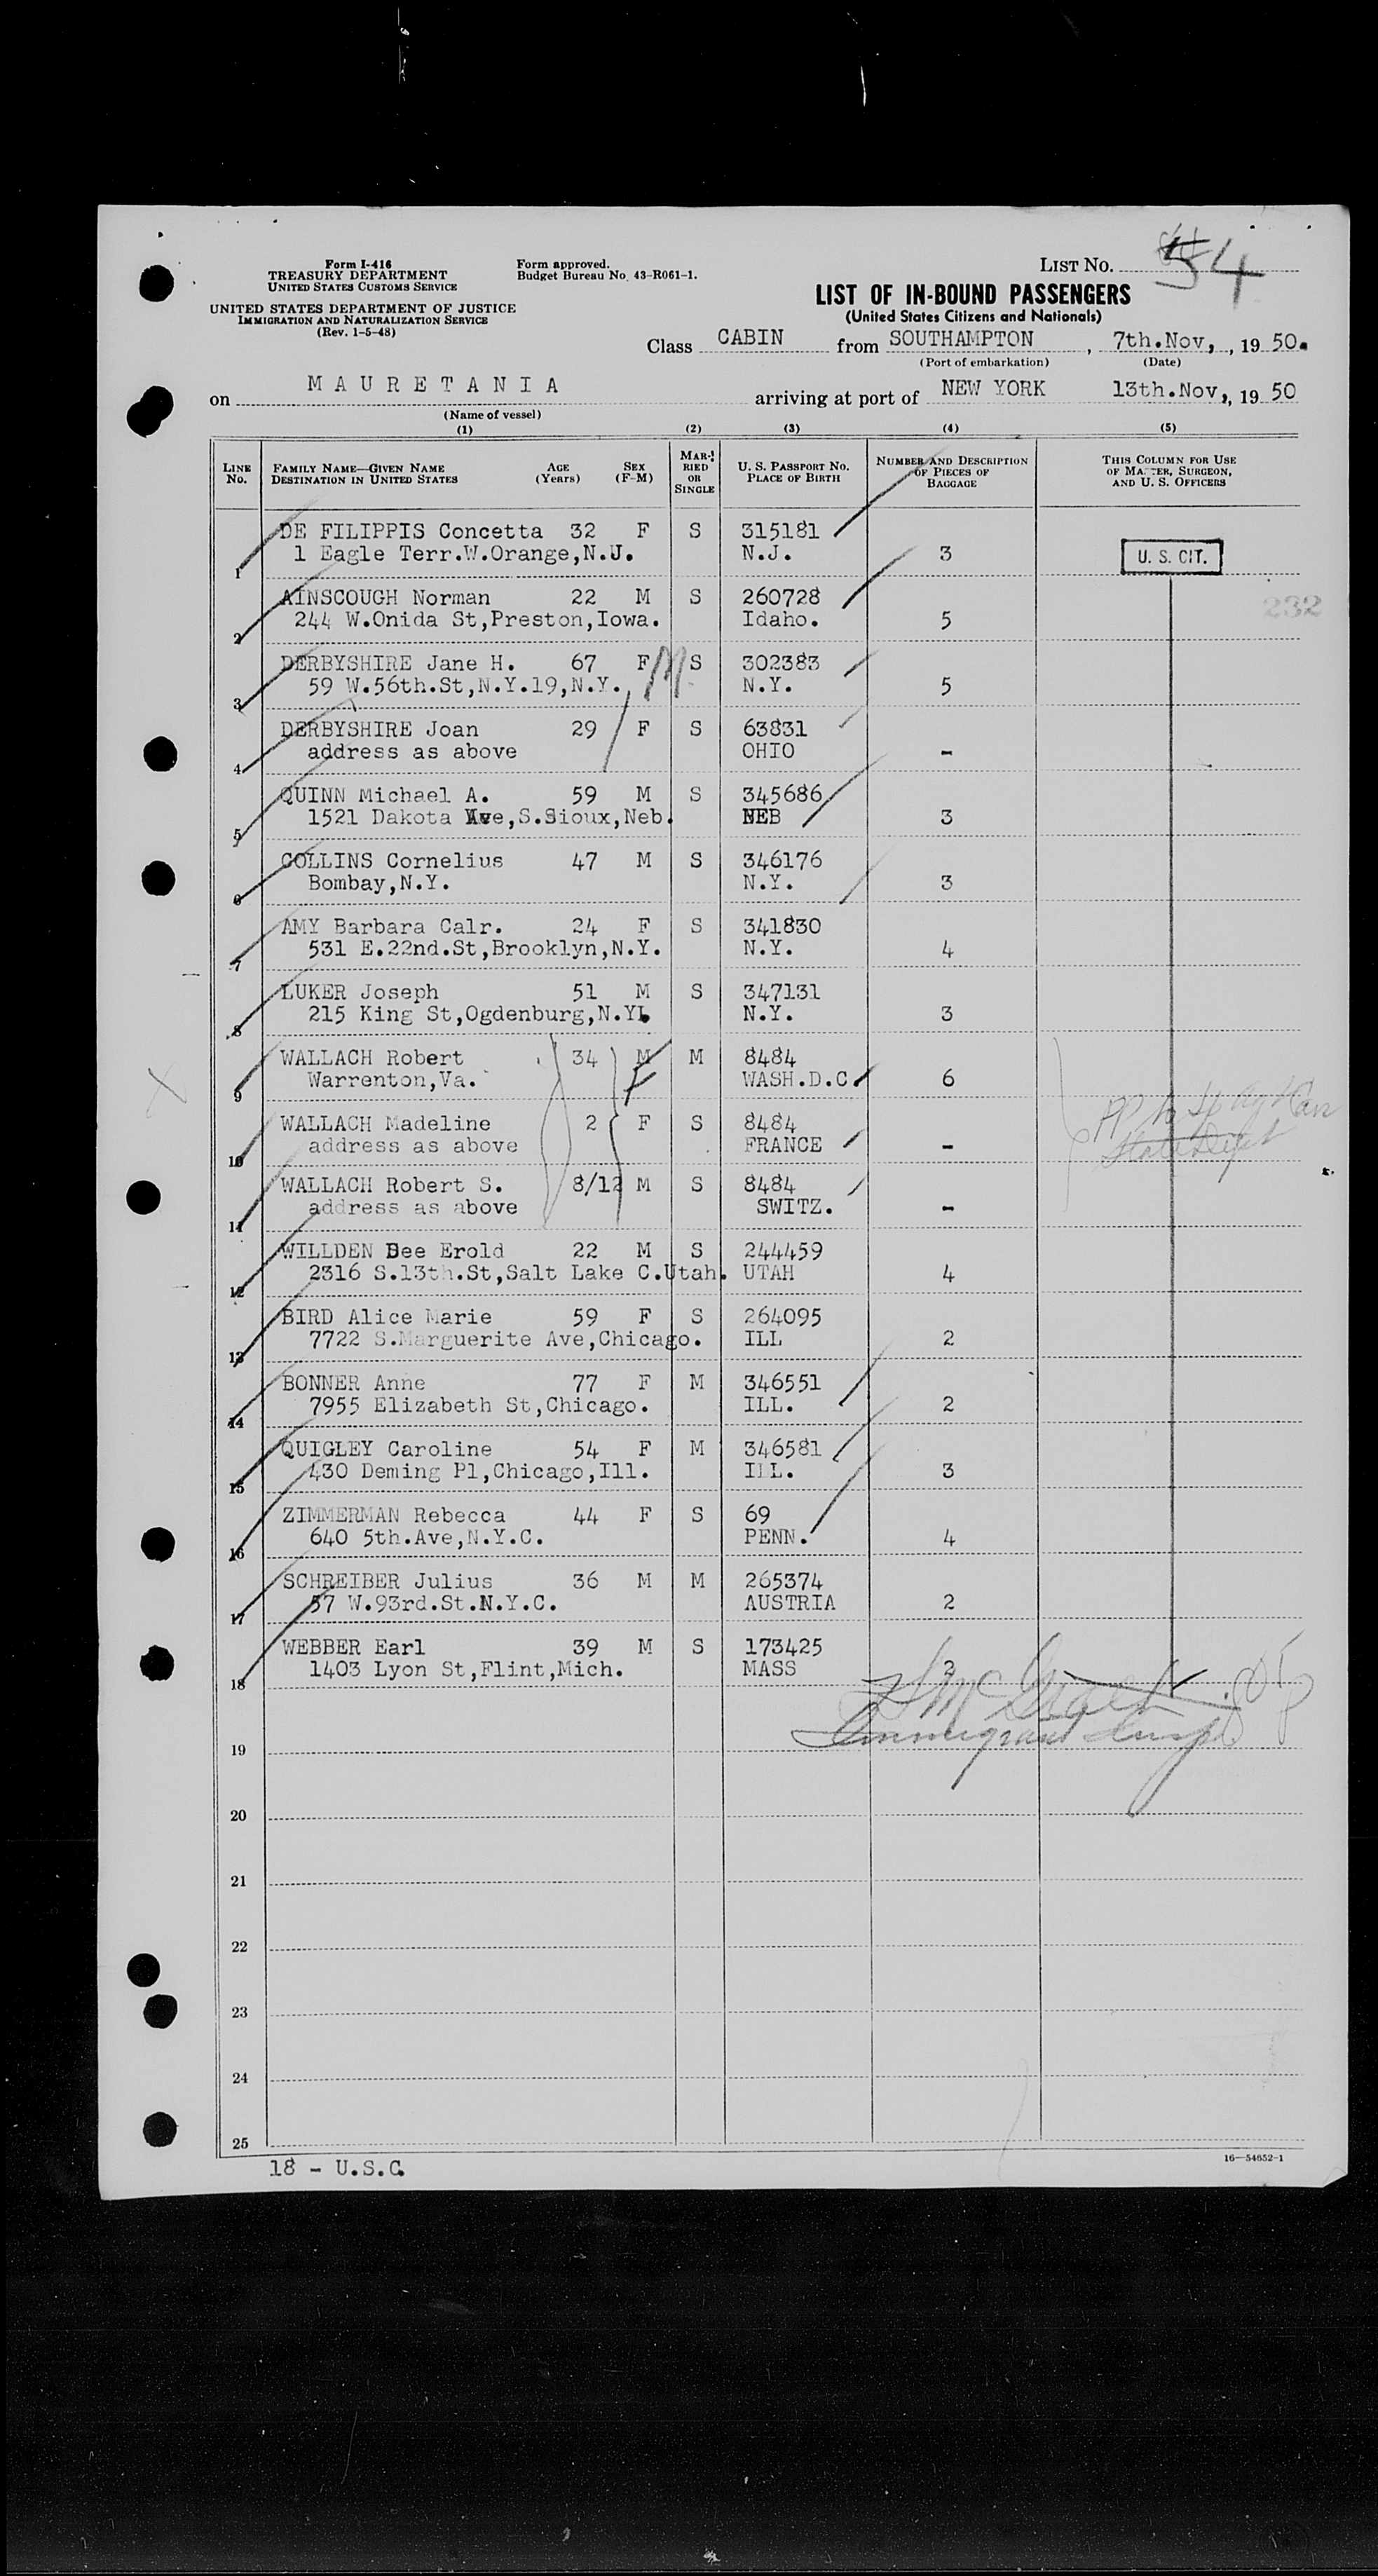 Form I-416
TREASURY DEPARTMENT
UNITED STATES CUSTOMS SERVICE
UNITED STATES DEPARTMENT OF JUSTICE
IMMIGRATION AND NATURALIZATION SERVICE
(Rev. 1-5-48)
Form approved.
Budget Bureau No. 43-R061-1.
LIST No. 54
LIST OF IN-BOUND PASSENGERS
(United States Citizens and Nationals)
Class CABIN from SOUTHAMPTON, 7th.Nov,, 1950.
(Port of embarkation) (Date)
on MAURETANIA arriving at port of NEW YORK 13th.Nov,, 1950
(Name of vessel)
(1) (2) (3) (4) (5)
LINE No. FAMILY NAME—GIVEN NAME DESTINATION IN UNITED STATES AGE (Years) SEX (F-M) MARRIED OR SINGLE U. S. PASSPORT No. PLACE OF BIRTH NUMBER AND DESCRIPTION OF PIECES OF BAGGAGE THIS COLUMN FOR USE OF MASTER, SURGEON, AND U. S. OFFICERS
DE FILIPPIS Concetta 32 F S 315181
1 1 Eagle Terr.W.Orange,N.J. N.J. 3 U. S. CIT.
AINSCOUGH Norman 22 M S 260728 232
2 244 W.Onida St,Preston,Iowa. Idaho. 5
DERBYSHIRE Jane H. 67 F M S 302383
3 59 W.56th.St,N.Y.19,N.Y. N.Y. 5
DERBYSHIRE Joan 29 F S 63831
4 address as above OHIO -
QUINN Michael A. 59 M S 345686
5 1521 Dakota Ave,S.Sioux,Neb. NEB 3
COLLINS Cornelius 47 M S 346176
6 Bombay,N.Y. N.Y. 3
AMY Barbara Calr. 24 F S 341830
7 531 E.22nd.St,Brooklyn,N.Y. N.Y. 4
LUKER Joseph 51 M S 347131
8 215 King St,Ogdenburg,N.Y. N.Y. 3
WALLACH Robert 34 M F M 8484
9 Warrenton,Va. WASH.D.C. 6
WALLACH Madeline 2 F S 8484
10 address as above FRANCE -
WALLACH Robert S. 8/12 M S 8484
11 address as above SWITZ. -
WILLDEN Dee Erold 22 M S 244459
12 2316 S.13th.St,Salt Lake C.Utah. UTAH 4
BIRD Alice Marie 59 F S 264095
13 7722 S.Marguerite Ave,Chicago. ILL 2
BONNER Anne 77 F M 346551
14 7955 Elizabeth St,Chicago. ILL. 2
QUIGLEY Caroline 54 F M 346581
15 430 Deming Pl,Chicago,Ill. ILL. 3
ZIMMERMAN Rebecca 44 F S 69
16 640 5th.Ave,N.Y.C. PENN. 4
SCHREIBER Julius 36 M M 265374
17 57 W.93rd.St.N.Y.C. AUSTRIA 2
WEBBER Earl 39 M S 173425
18 1403 Lyon St,Flint,Mich. MASS 2
Immigrant Insp
19
20
21
22
23
24
25
18 - U.S.C.
16—54652-1